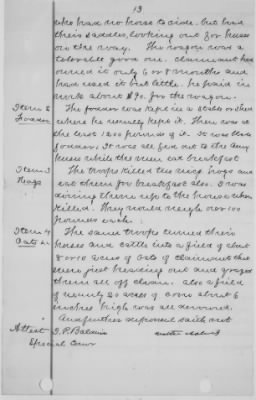 13
who had no horse to ride. but had
their saddles, looking out for horses
on the way. The wagon was a
tolerable good one. claimant had
owned it only 6 or 8 months and
had used it but little. he paid in
about $90. for the wagon.
Item 2 The fodder was kept in a stable or shed
Fodder where he usually kept it. There was at
the least 1200 pounds of it. It was
fodder. It was all fed out to the Army
horses while the men eat breakfast
Item 3 The troops killed two hogs and
Hogs eat them for breakfast also. I was
driving them up to the house when
killed. They would weigh over 100
pounds each.
Item 4 The same troops turned their
Oats &c. horses and cattle into a field of about
8 or 10 acres of oats of claimant that
were just breaking out and grazed
them all off clean. also a field
of nearly 20 acres of corn about 6
inches high was all
And further deponent saith not
Attest J. P. Baldwin
Special Com